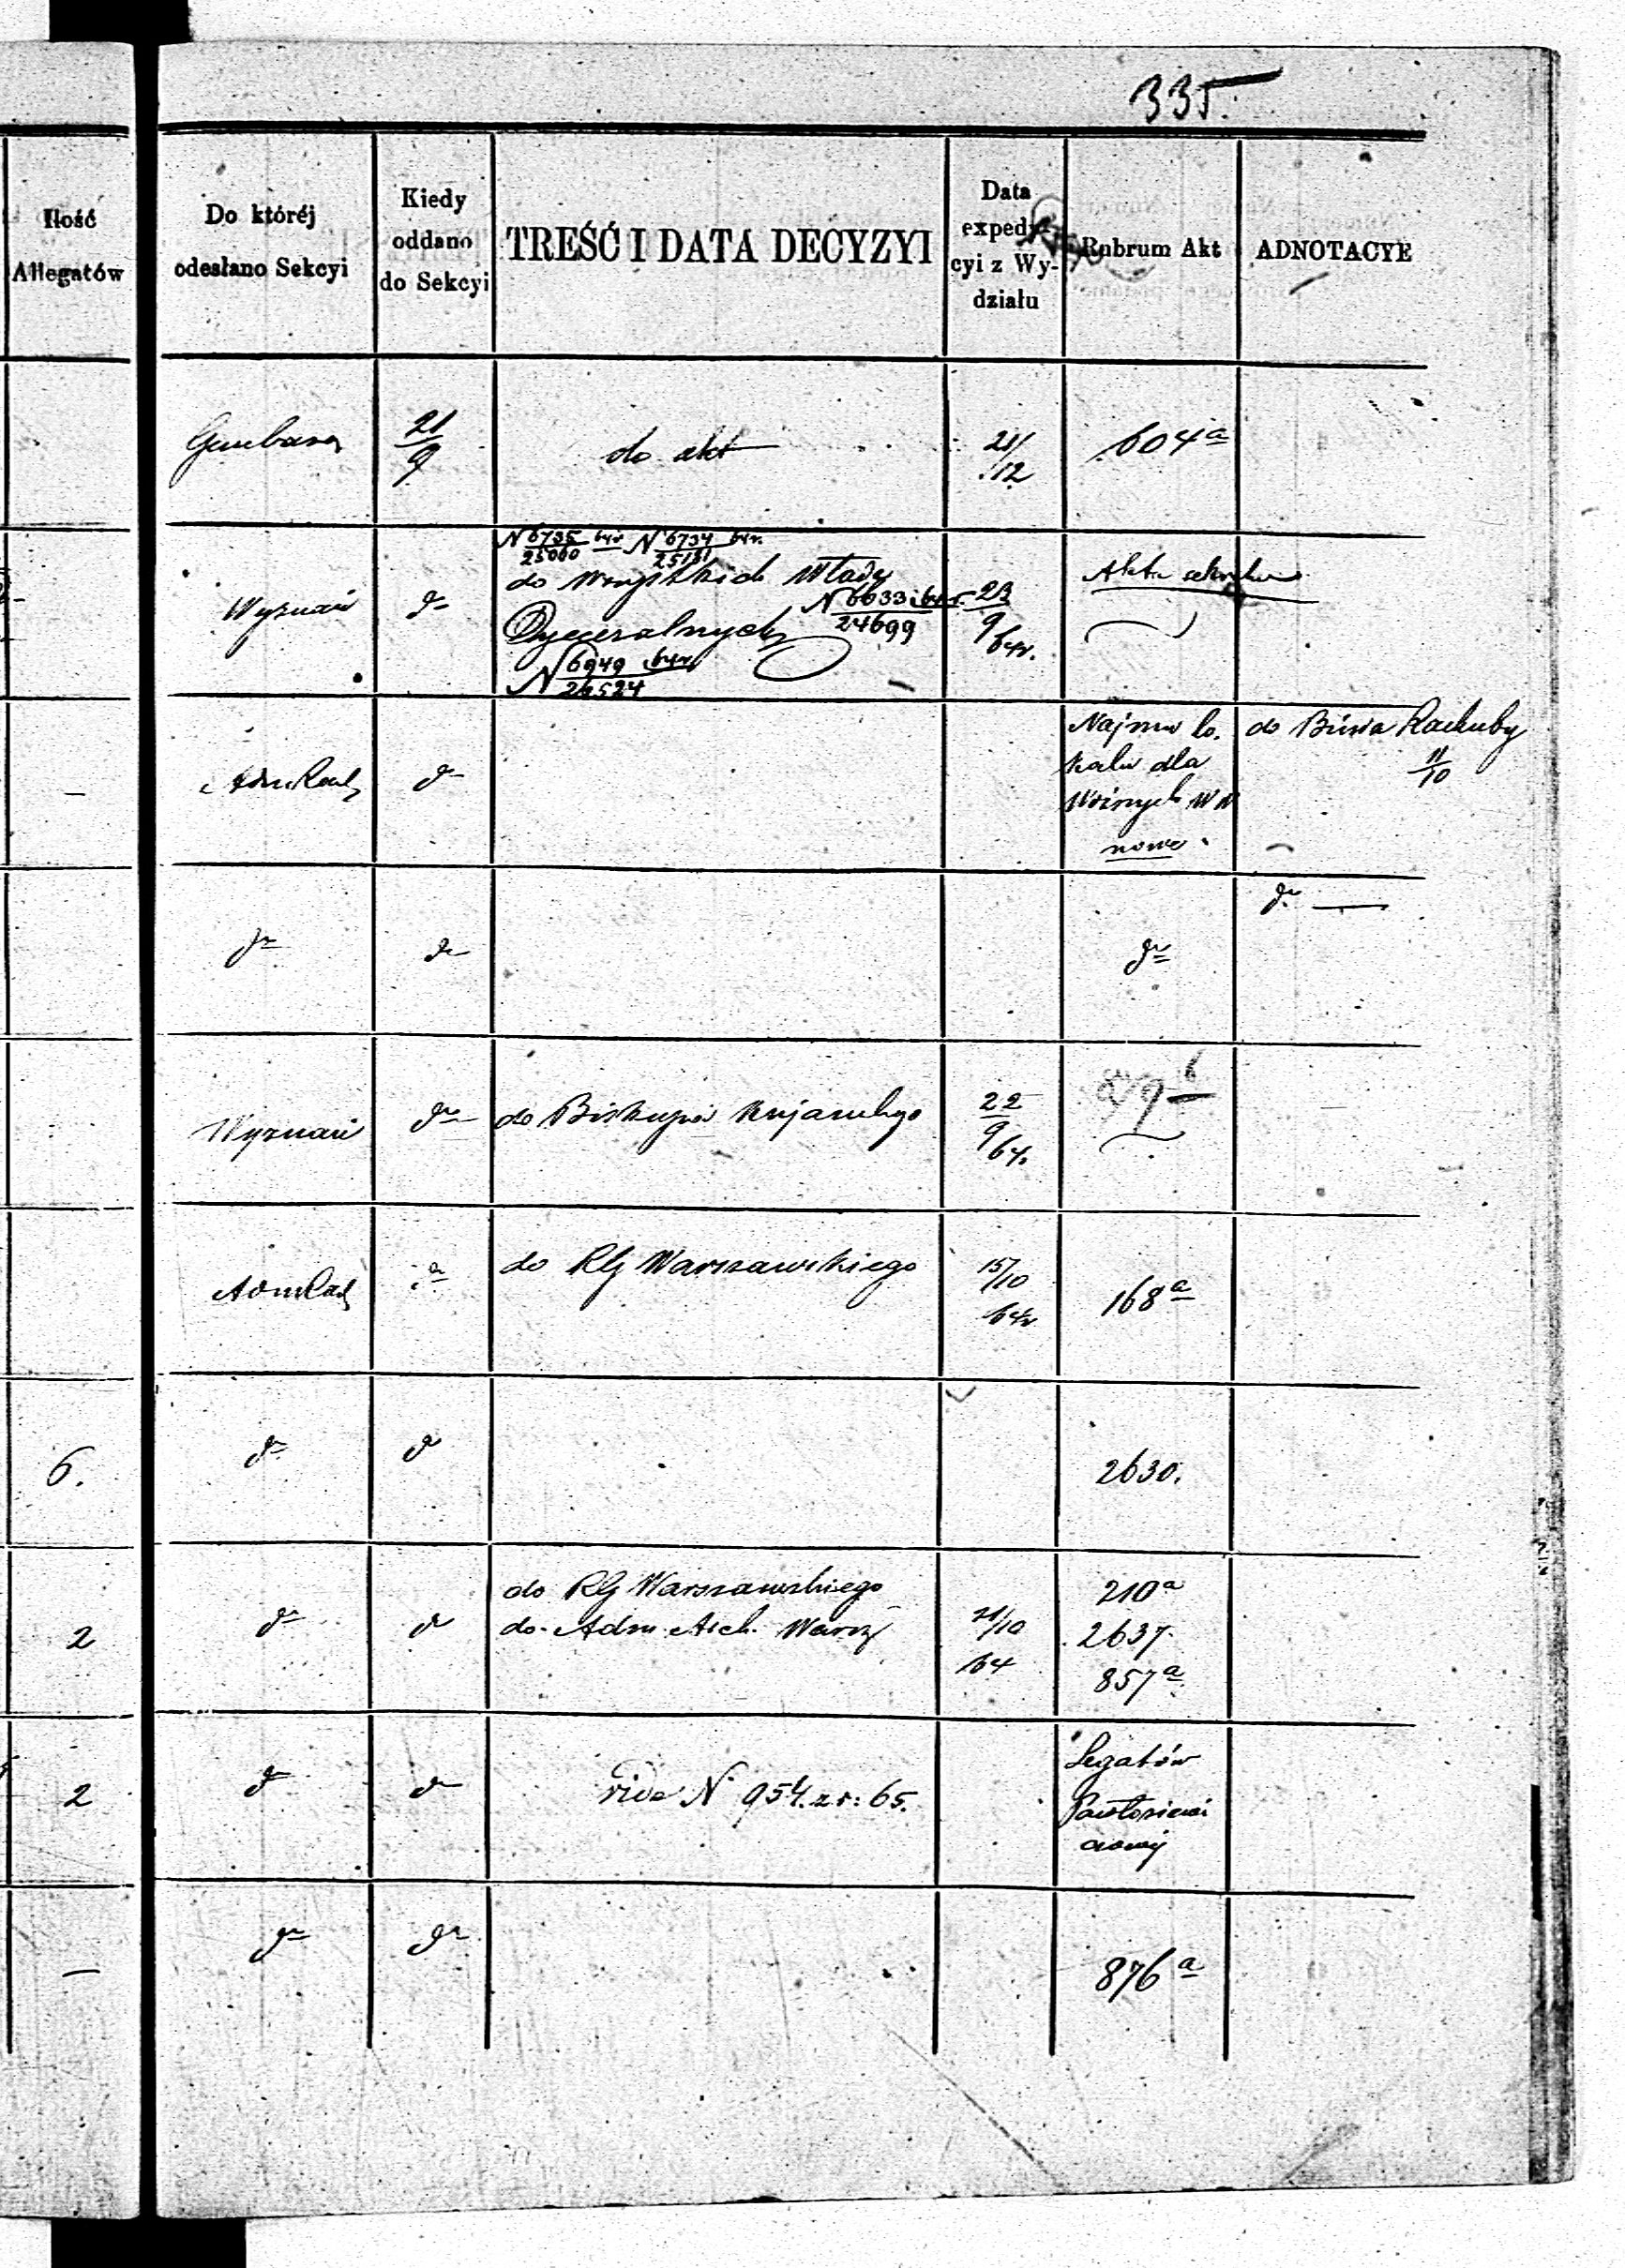 335.
Ilość
Allegatów
Do któréj
odesłano Sekcyi
Kiedy
oddano
do Sekcyi
TREŚĆ I DATA DECYZYI
Data
expedy-
cyi z Wy-
działu
Rubrum Akt
ADNOTACYE
21/9
do akt
21/12
604a
N 6735/25060 64r. N 6734/25131 64r.
Wyznań
do
do wszystkich Władz
Dyecezalnych
N 6633/24699 64r.
N 6949/26524 64r.
23/9 64r.
Akta
—
Adm Rach
do
Najmu lo-
kalu dla
Woźnych W W
nowe
do Biura Rachuby
11/10
do
do
do
do
Wyznań
do
do Biskupa Kujawskiego
22/9 64.
Adm Rach
do
do RG Warszawskiego
15/10
64r
168a
6.
do
do
2630.
2
do
do
do RG Warszawskiego
do Adm. Arch. Warsz
21/10
64
210a
2637.
857a
2
do
do
vide N 954. z r: 65.
Legatów
—
do
do
876a